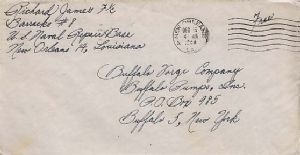 Richard James F 1/c
Barracks # 8
U S Naval Repair Base
New Orleans 14, Louisiana
NEW ORLEANS
DEC
LA.
Free
Buffalo Forge Company
Buffalo Pumps, Inc.
P.O. Box 985
Buffalo 5, New York